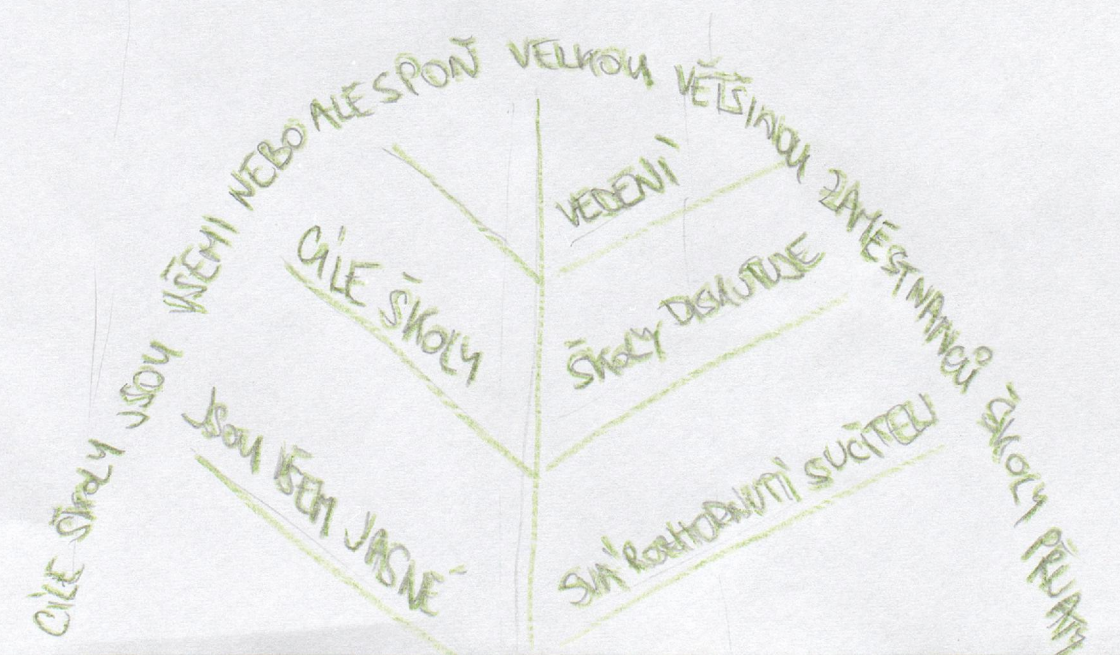 CÍLE ŠKOLY JSOU VŠEMI NEBO ALESPOŇ VELKOU VĚTŠINOU ZAMĚSTNANCŮ ŠKOLY PŘIJATY
CÍLE ŠKOLY
JSOU VŠEM JASNÉ
VEDENÍ
ŠKOLY DISKUTUJE
SVÁ ROZHODNUTÍ S UČITELI